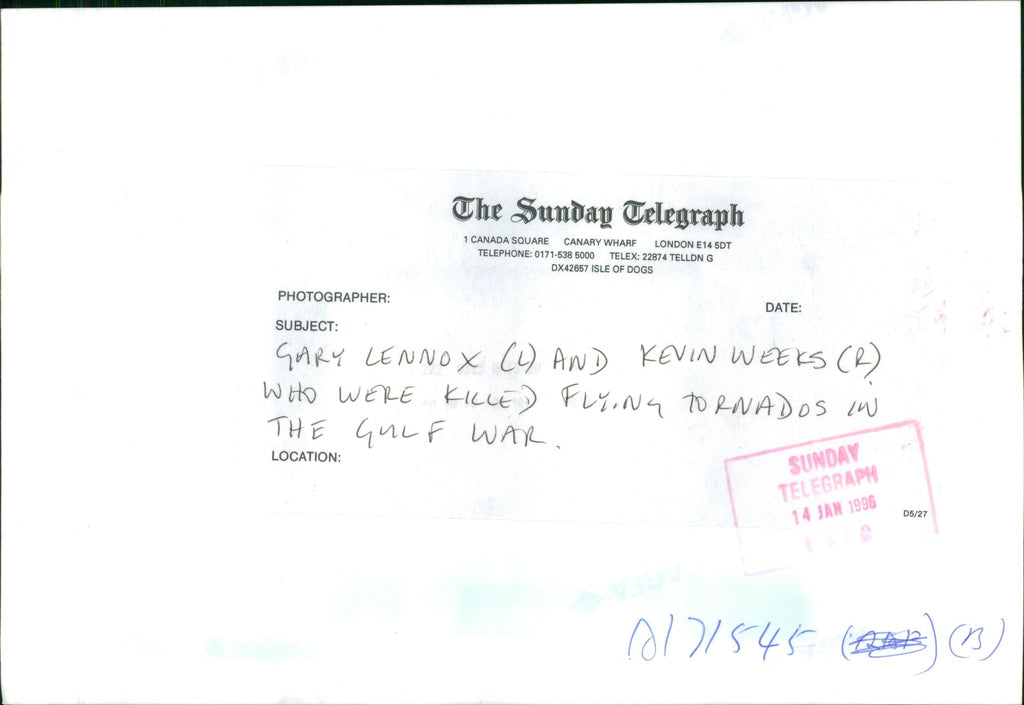 The Sunday Telegraph
1 CANADA SQUARE CANARY WHARF LONDON E14 5DT
TELEPHONE: 0171-538 5000 TELEX: 22874 TELLDN G
DX42657 ISLE OF DOGS
PHOTOGRAPHER:
DATE:
SUBJECT:
GARY LENNOX (L) AND KEVIN WEEKS (R)
WHO WERE KILLED FLYING TORNADOS IN
THE GULF WAR.
LOCATION:
SUNDAY
TELEGRAPH
14 JAN 1996
D5/27
(B)